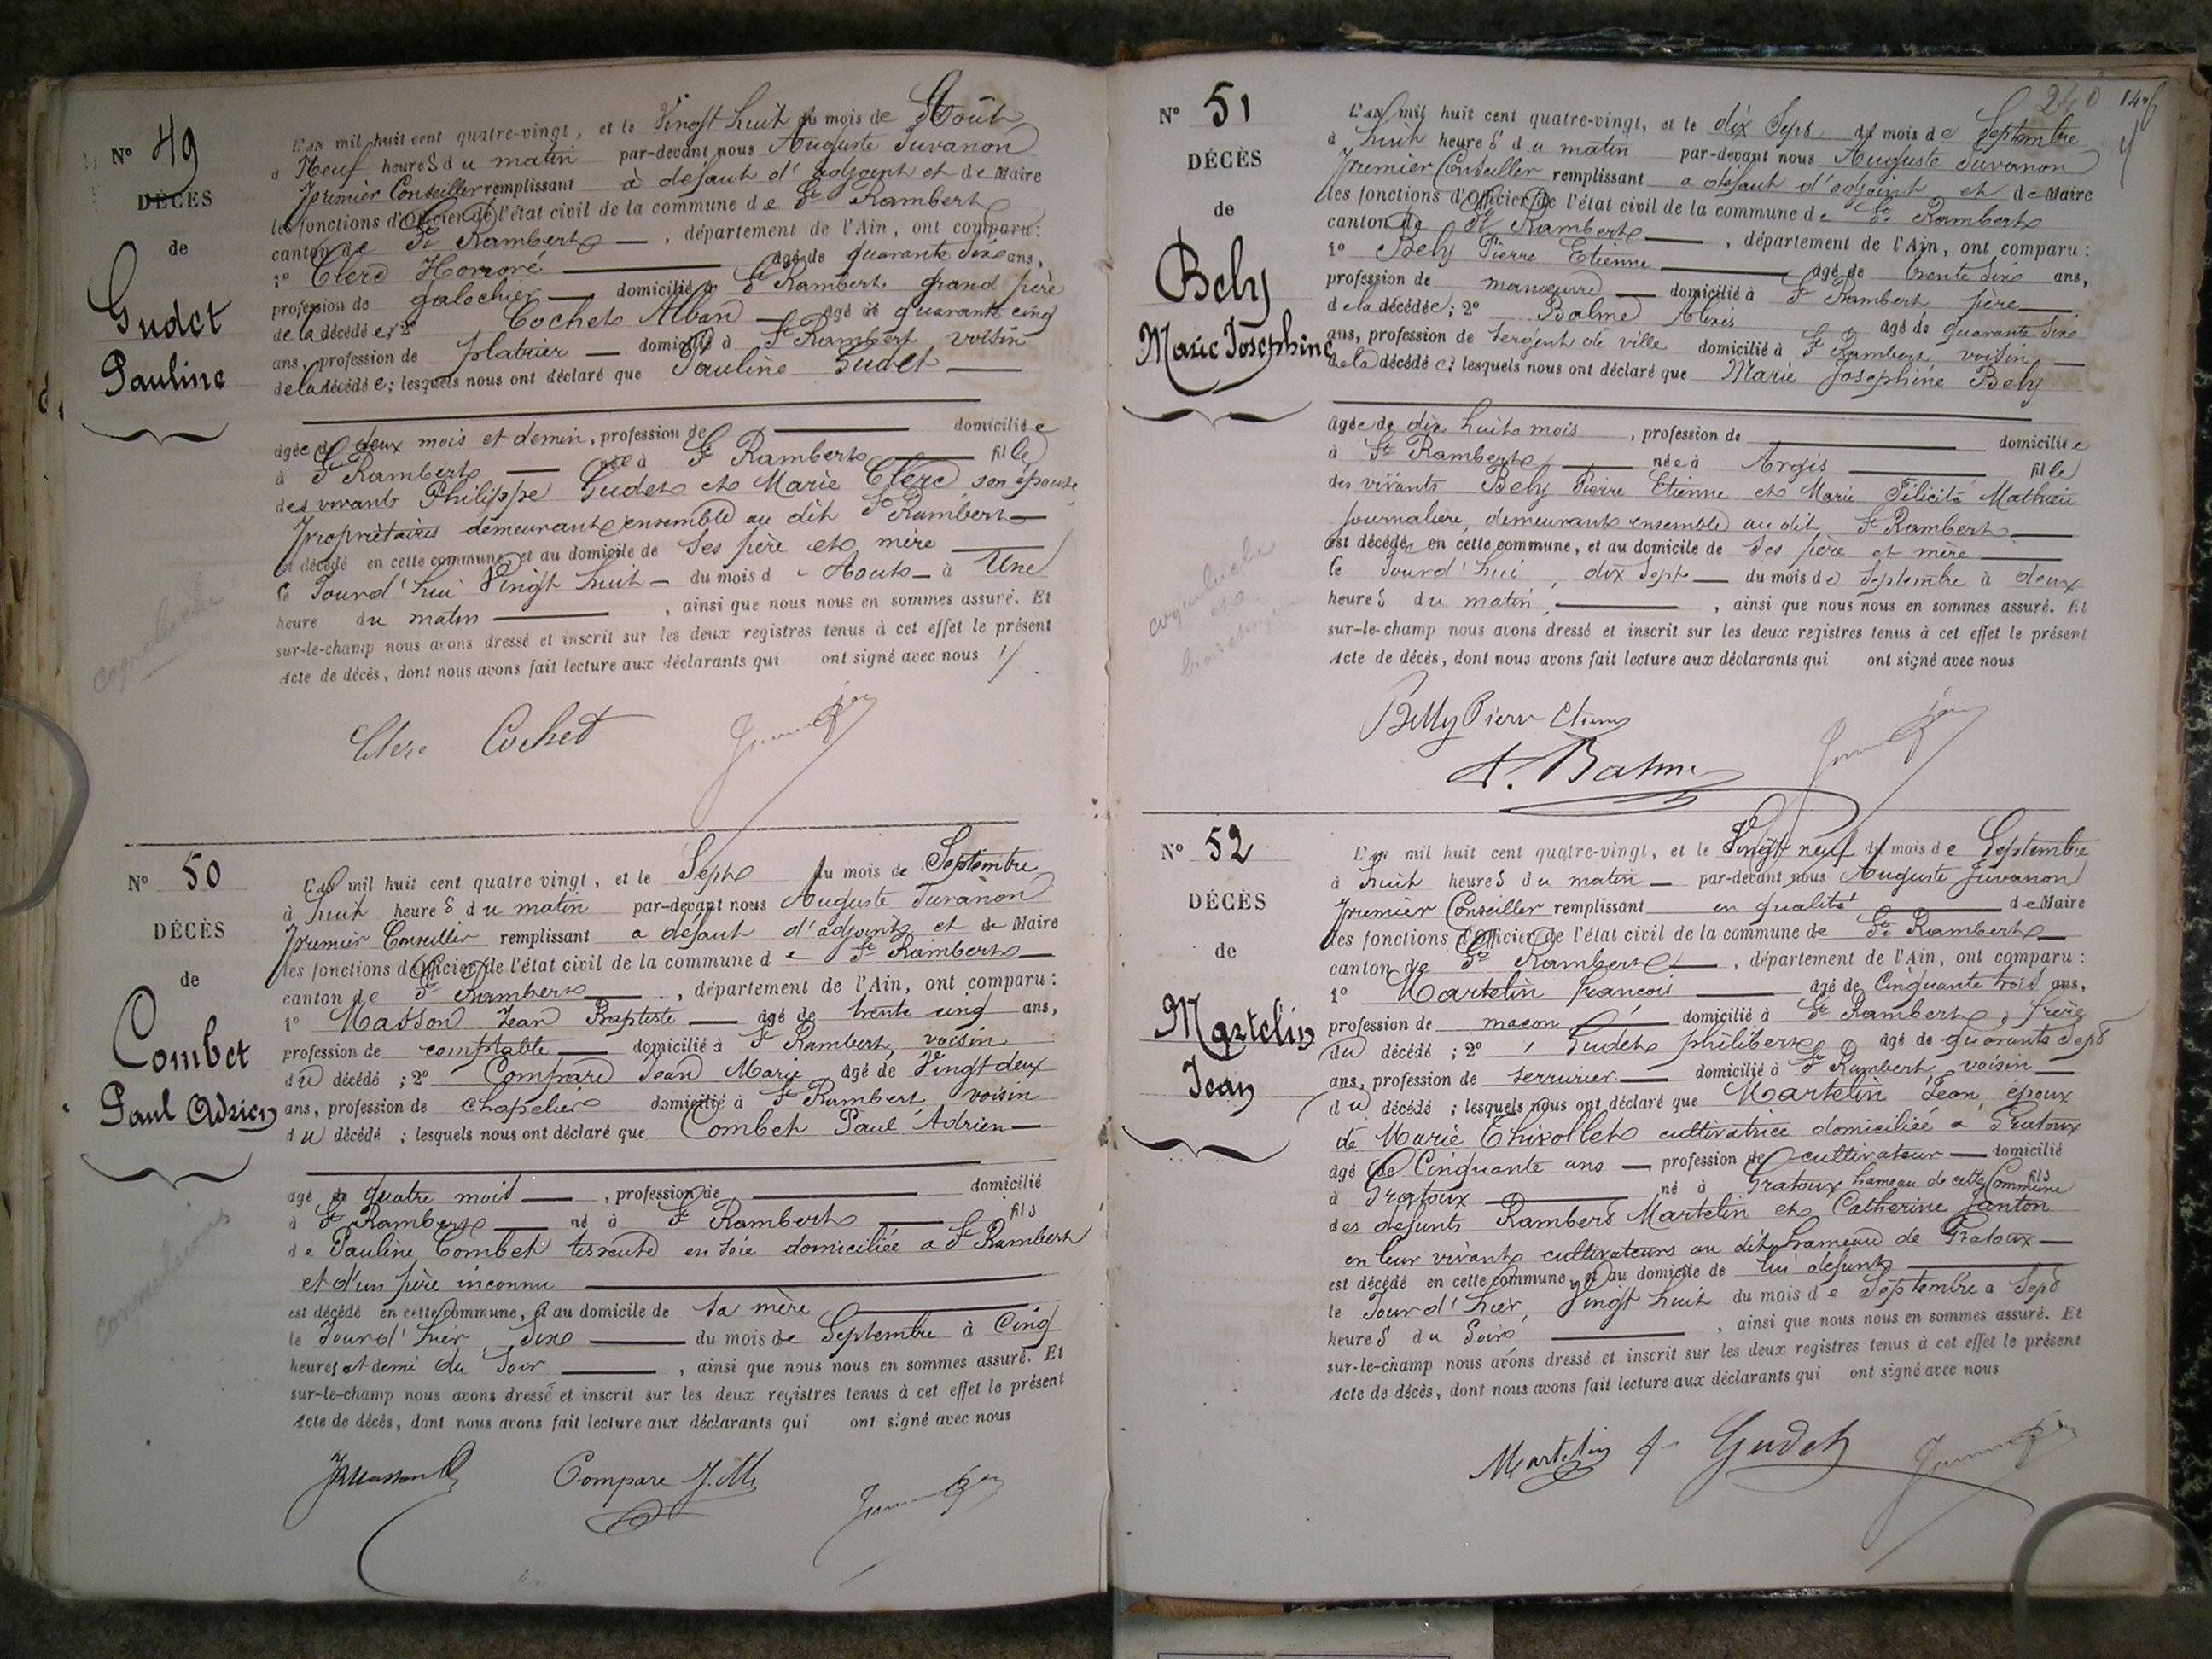 N° 49
DÉCÈS
de
Gudet
Pauline
L'an mil huit cent quatre-vingt, et le Vingt huit du mois de Août
à Neuf heures du matin par-devant nous Auguste Juvanon
premier Conseiller remplissant à défaut d'adjoint et de Maire
les fonctions d'Officier de l'état civil de la commune de St Rambert
canton de St Rambert, département de l'Ain, ont comparu:
1° Clerc Honoré âgé de quarante six ans,
profession de galochier domicilié à St Rambert grand père
de la décédée; 2° Cochet Alban âgé de quarante cinq
ans, profession de platrier domicilié à St Rambert voisin
de la décédée; lesquels nous ont déclaré que Pauline Gudet
âgée de deux mois et demin, profession de domiciliée
à St Rambert née à St Rambert fille
des vivants Philippe Gudet et Marie Clerc son épouse
propriètaires demeurant ensemble au dit St Rambert
est décédé en cette commune, et au domicile de ses père et mère
le Jourd'hui Vingt huit du mois d'Aout à Une
heure du matin, ainsi que nous nous en sommes assuré. Et
sur-le-champ nous avons dressé et inscrit sur les deux registres tenus à cet effet le présent
Acte de décès, dont nous avons fait lecture aux déclarants qui ont signé avec nous
coqueluche
Clerc Cochet
N° 50
DÉCÈS
de
Combet
Paul Adrien
L'an mil huit cent quatre vingt, et le Sept du mois de Septembre
à huit heures du matin par-devant nous Auguste Juvanon
premier Conseiller remplissant a défaut d'adjoint et de Maire
les fonctions d'Officier de l'état civil de la commune de St Rambert
canton de St Rambert, département de l'Ain, ont comparu:
1° Masson Jean Baptiste âgé de trente cinq ans,
profession de comptable domicilié à St Rambert, voisin
du décédé; 2° Compare Jean Marie âgé de Vingt deux
ans, profession de chapelier domicilié à St Rambert, voisin
du décédé; lesquels nous ont déclaré que Combet Paul Adrien
âgé de quatre mois, profession de domicilié
à St Rambert né à St Rambert fils
de Pauline Combet en soie domiciliée a St Rambert
et d'un père inconnu
est décédé en cette commune, et au domicile de sa mère
le Jourd'hier, six du mois de Septembre à Cinq
heures et demi du Soir, ainsi que nous nous en sommes assuré. Et
sur-le-champ nous avons dressé et inscrit sur les deux registres tenus à cet effet le présent
Acte de décès, dont nous avons fait lecture aux déclarants qui ont signé avec nous
convulsions
JBMasson Compare J.M.
240 146
N° 51
DÉCÈS
de
Bely
Marie Josephine
L'an mil huit cent quatre-vingt, et le dix Sept du mois de Septembre
à huit heures du matin par-devant nous Auguste Juvanon
premier Conseiller remplissant a défaut d'adjoint et de Maire
les fonctions d'Officier de l'état civil de la commune de St Rambert
canton de St Rambert, département de l'Ain, ont comparu:
1° Bely Pierre Etienne âgé de trente six ans,
profession de manœuvre domicilié à St Rambert père
de la décédée; 2° Balme Alexis âgé de quarante six
ans, profession de sergent de ville domicilié à St Rambert voisin
de la décédée; lesquels nous ont déclaré que Marie Josephine Bely
âgée de dix huit mois, profession de domiciliée
à St Rambert née à Argis fille
des vivants Bely Pierre Etienne et Marie Félicité Mathieu
journalière, demeurant ensemble au dit St Rambert
est décédée en cette commune, et au domicile de ses père et mère
le Jourd'hui, dix Sept du mois de Septembre à deux
heures du matin, ainsi que nous nous en sommes assuré. Et
sur-le-champ nous avons dressé et inscrit sur les deux registres tenus à cet effet le présent
Acte de décès, dont nous avons fait lecture aux déclarants qui ont signé avec nous
coqueluche
et
Belly Pierre Etienne
A. Balme
N° 52
DÉCÈS
de
Martelin
Jean
L'an mil huit cent quatre-vingt, et le Vingt neuf du mois de Septembre
à huit heures du matin par-devant nous Auguste Juvanon
premier Conseiller remplissant en qualité de Maire
les fonctions d'Officier de l'état civil de la commune de St Rambert
canton de St Rambert, département de l'Ain, ont comparu:
1° Martelin francois âgé de Cinquante trois ans,
profession de macon domicilié à St Rambert, frère
du décédé; 2° Gudet philibert âgé de quarante sept
ans, profession de serrurier domicilié à St Rambert, voisin
du décédé; lesquels nous ont déclaré que Martelin Jean, époux
de Marie Thixollet cultivatrice domiciliée a Gratoux
âgé de Cinquante ans profession de cultivateur domicilié
à Gratoux né à Gratoux hameau de cette Commune fils
des defunts Rambert Martelin et Catherine Janton
en leur vivant cultivateurs au dit hameau de Gratoux
est décédé en cette commune, et au domicile de lui défunt
le Jourd'hier, Vingt huit du mois de Septembre a Sept
heures du Soir, ainsi que nous nous en sommes assuré. Et
sur-le-champ nous avons dressé et inscrit sur les deux registres tenus à cet effet le présent
Acte de décès, dont nous avons fait lecture aux déclarants qui ont signé avec nous
Martelin f Gudet